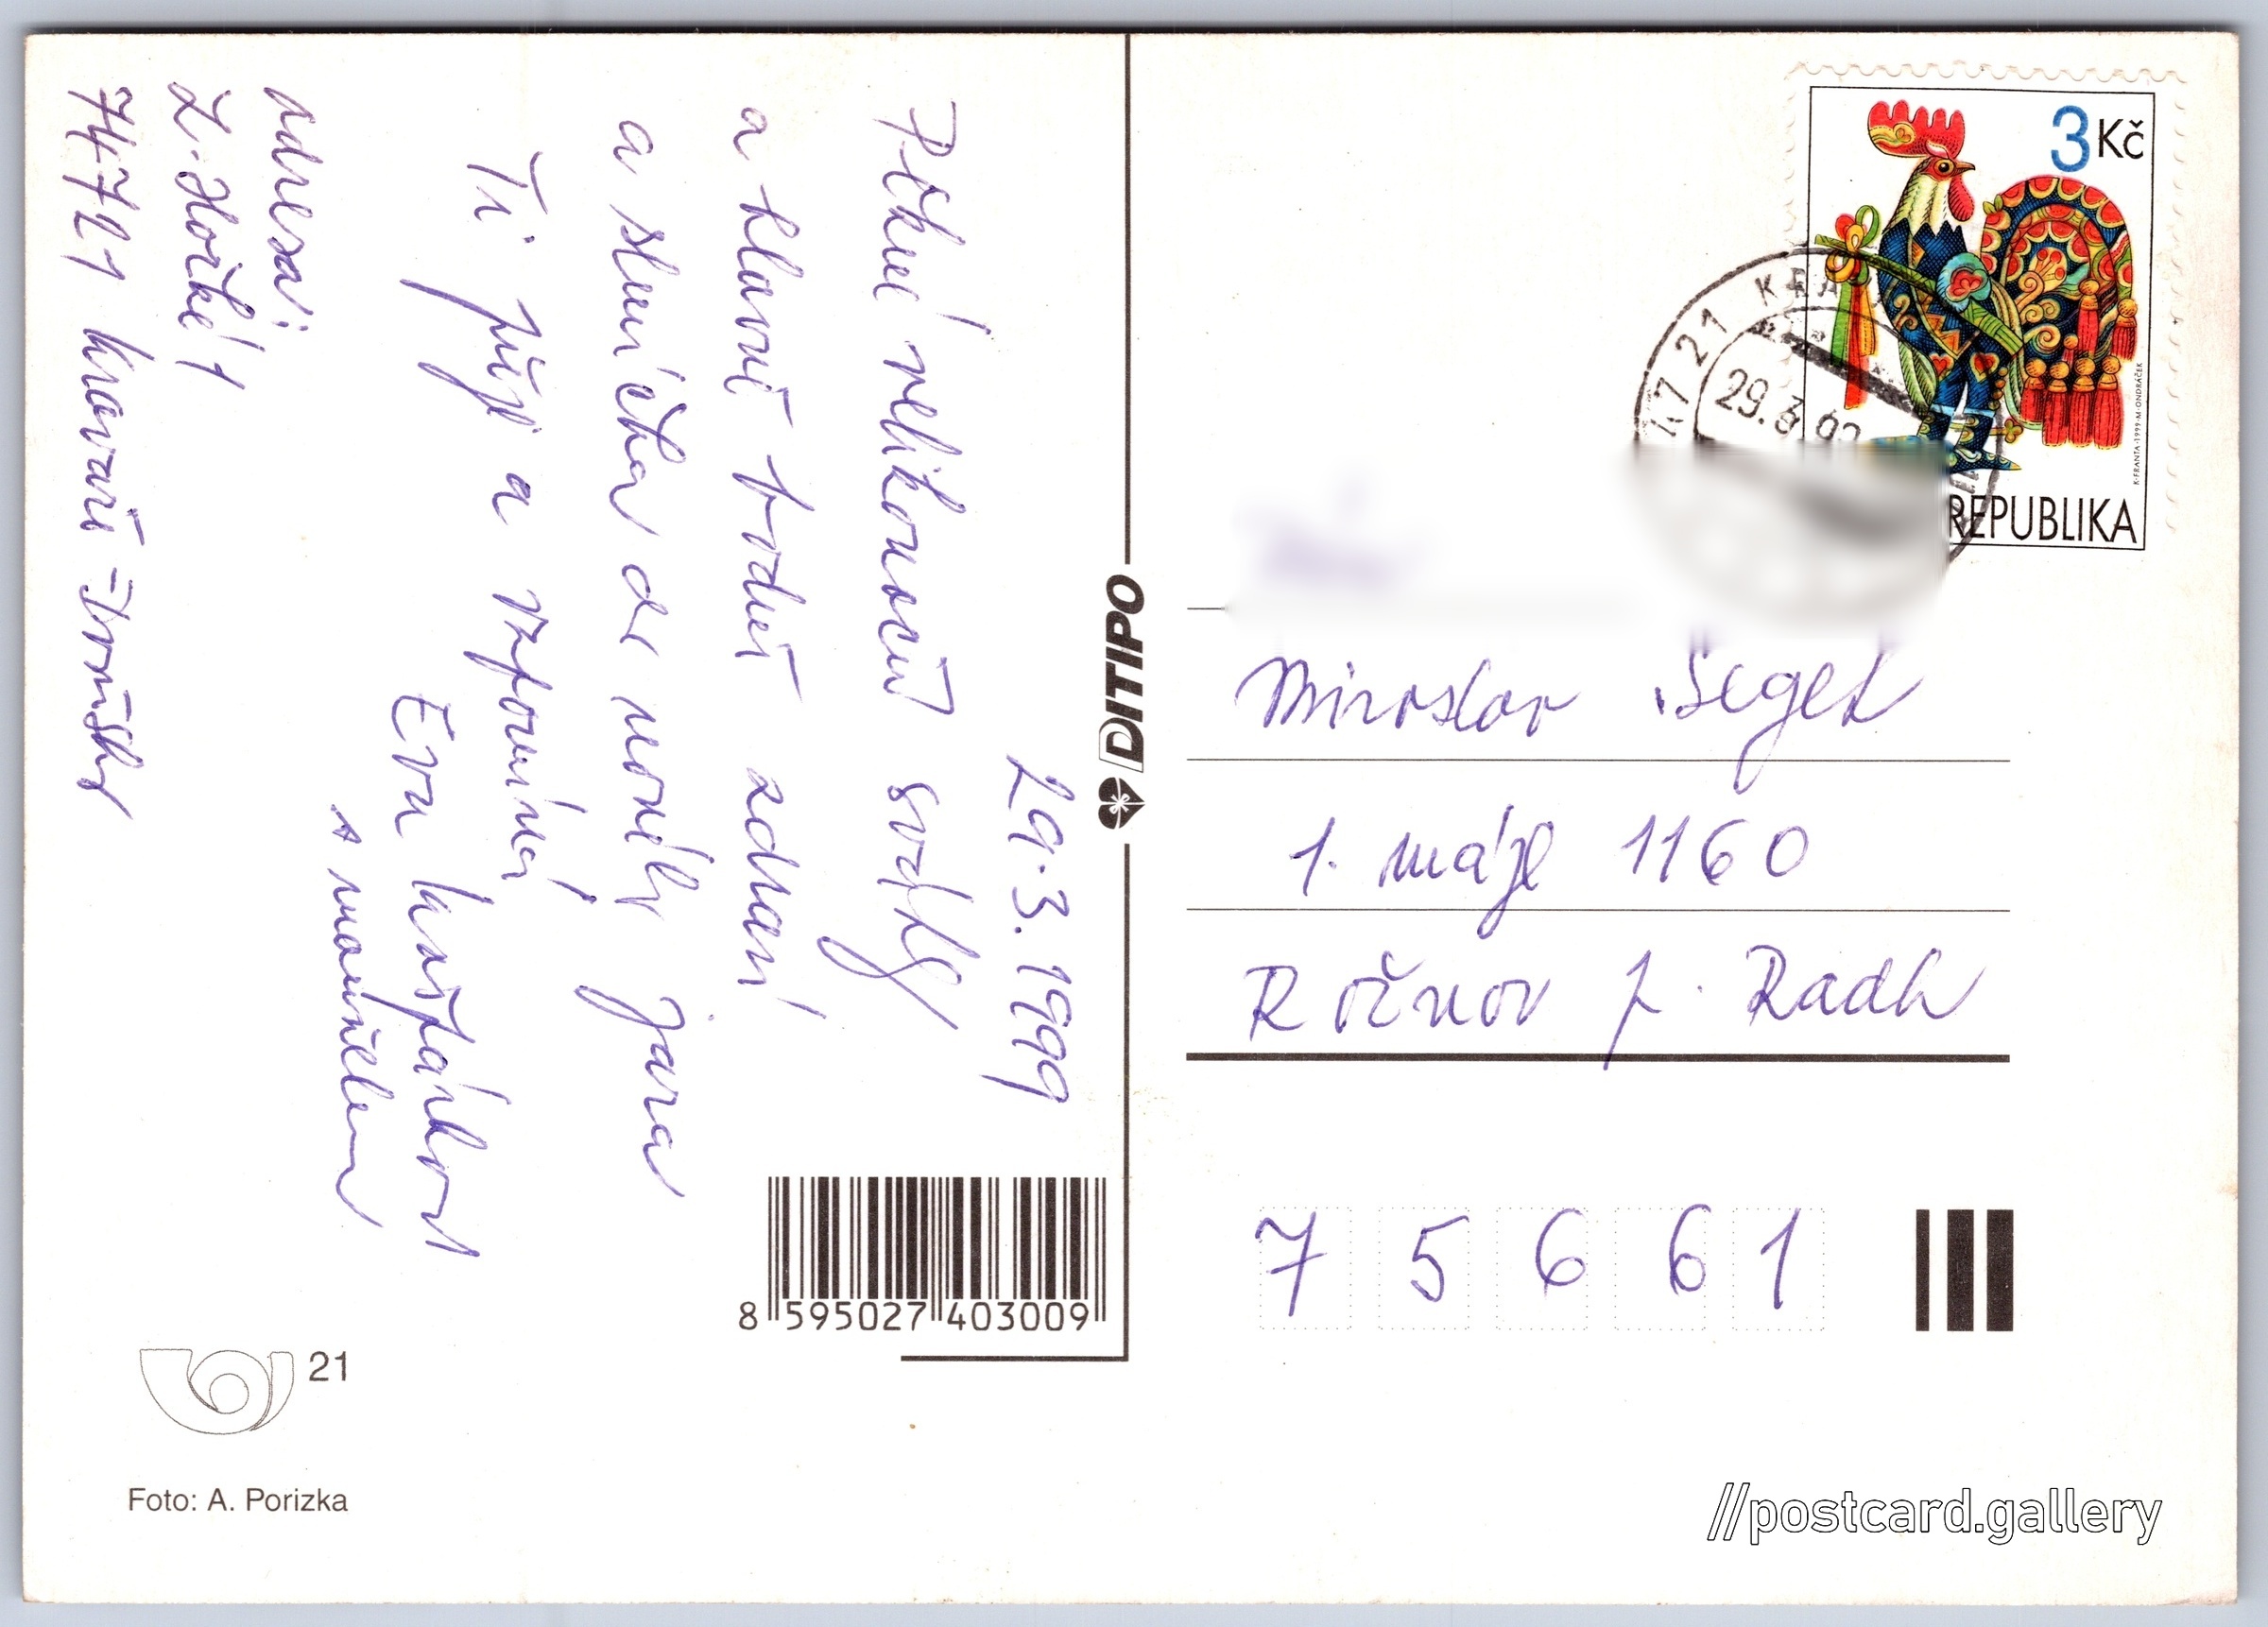 29.3.1999
Pěkné velikonoční svátky
a hlavně hodně zdraví
a sluníčka do nového jara
Ti přeje a vzpomíná
Eva Kašpárková
s manželem
adresa:
747 21 Kravaře
DITIPO
8 595027 403009
21
Foto: A. Porizka
3 Kč
REPUBLIKA
K·FRANTA·1999·M·ONDRÁČEK
747 21 KRA
29.3.99
Miroslav
1. máje 1160
Rožnov p. Radh
7 5 6 6 1
//postcard.gallery